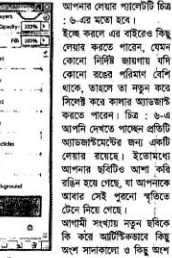 Opacity
Fill 100%
ackground
আপনার লেয়ার প্যালেটটি চিত্র
: ৬-এর মতো হবে।
ইচ্ছে করলে এর বাইরেও কিছু
লেয়ার করতে পারেন, যেমন
কোনো নির্দিষ্ট জায়গায় যদি
কোনো রঙের পরিমাণ বেশি
থাকে, তাহলে তা নতুন করে
সিলেক্ট করে কালার অ্যাডজাস্ট
করতে পারেন। চিত্র : ৬-এ
আপনি দেখতে পাচ্ছেন প্রতিটি
অ্যাডজাস্টমেন্টের জন্য একটি
লেয়ার রয়েছে। ইতোমধ্যে
আপনার ছবিটিও আশা করি
রঙিন হয়ে গেছে, যা আপনাকে
আবার সেই পুরনো স্মৃতিতে
টেনে নিয়ে গেছে।
আগামী সংখ্যায় নতুন ছবিকে
কি করে আর্টিস্টিকভাবে কিছু
অংশ সাদাকালো ও কিছু অংশ